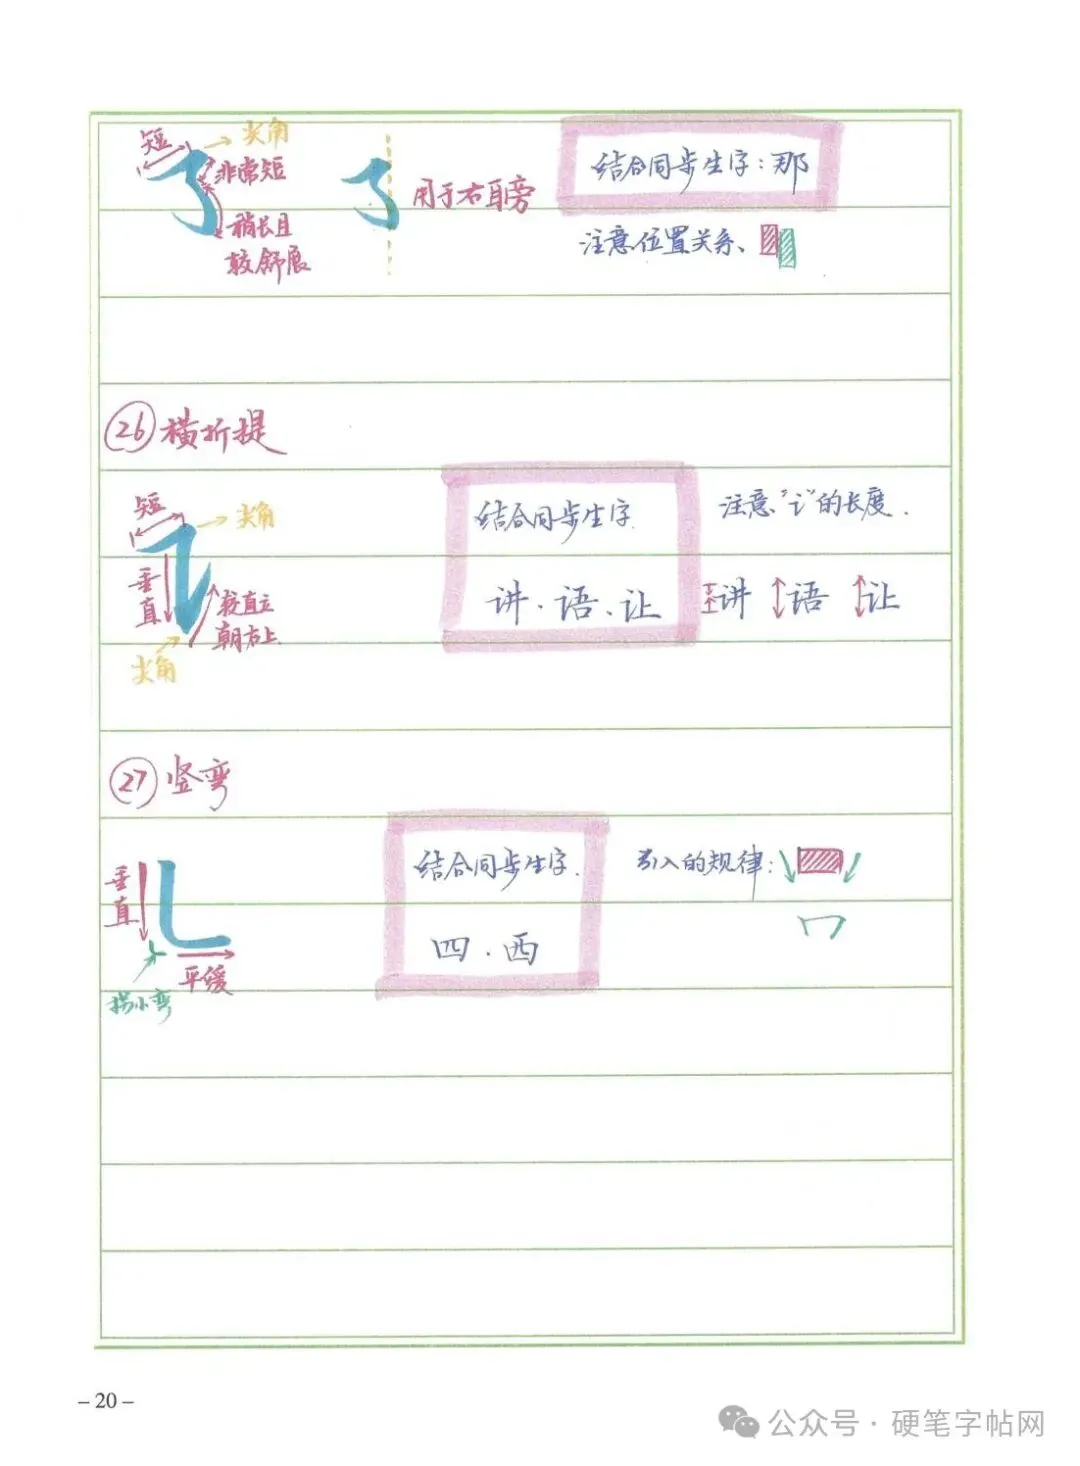 短 尖角
非常短 用于右耳旁 结合同步生字：那
稍长且 注意位置关系、
较舒展
26 横折提
短 尖角 结合同步生字. 注意“讠”的长度.
垂直 较直立 讲.语.让 讲 语 让
朝右上
尖角
27 竖弯
垂直 结合同步生字. 引入的规律：
四.西
平缓
拐小弯
– 20 –
公众号 · 硬笔字帖网